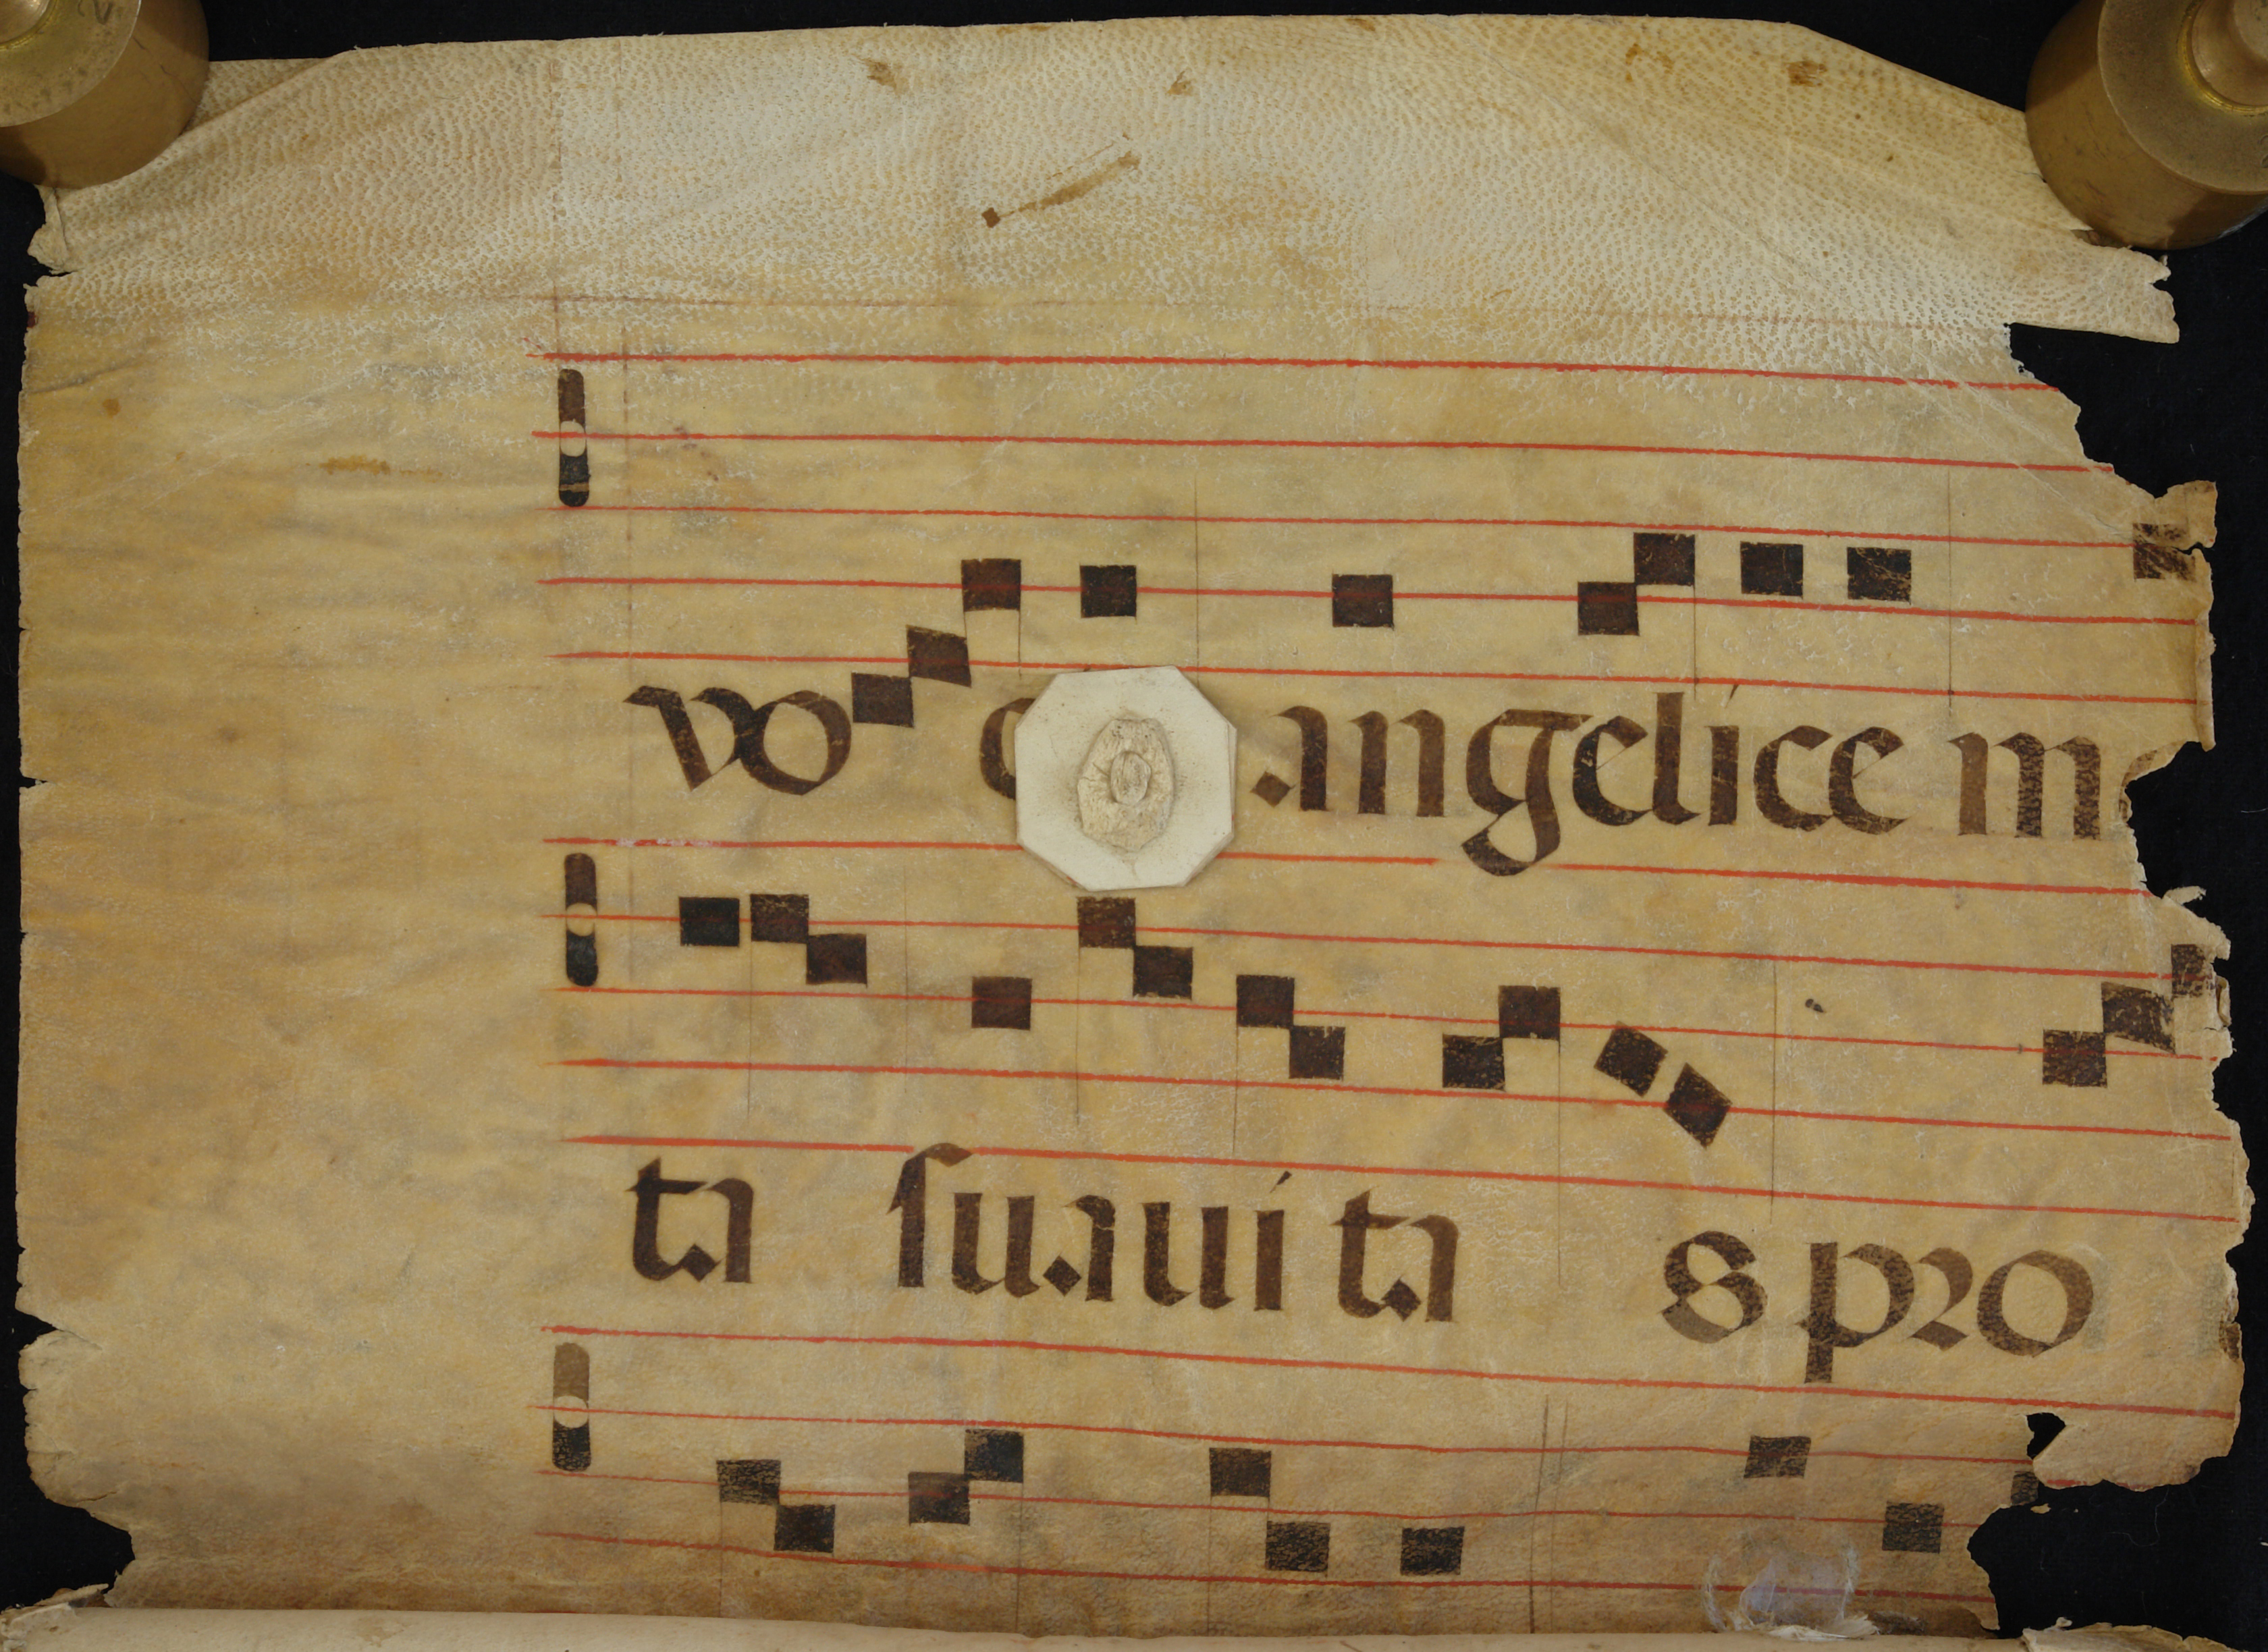 vo angelice
ta suauita s pro